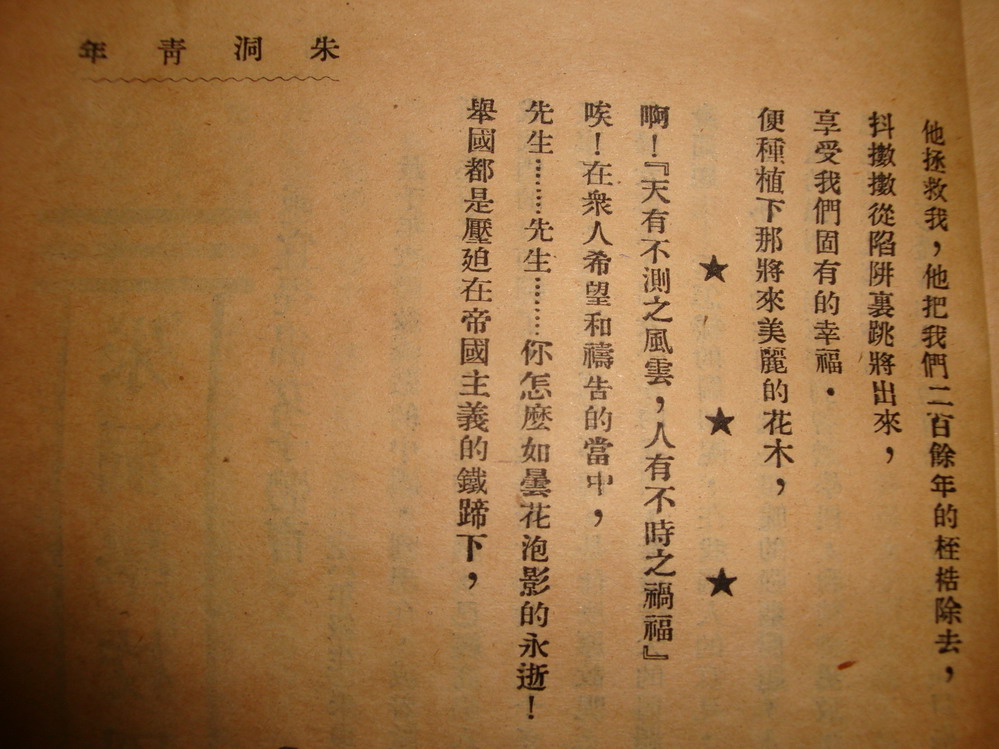 朱洞青年
他拯救我，他把我們二百餘年的桎梏除去，
抖擻擻從陷阱裏跳將出來，
享受我們固有的幸福．
便種植下那將來美麗的花木，
★ ★ ★
啊！『天有不測之風雲，人有不時之禍福』
唉！在衆人希望和禱告的當中，
先生………先生………你怎麼如曇花泡影的永逝！
舉國都是壓迫在帝國主義的鐵蹄下，